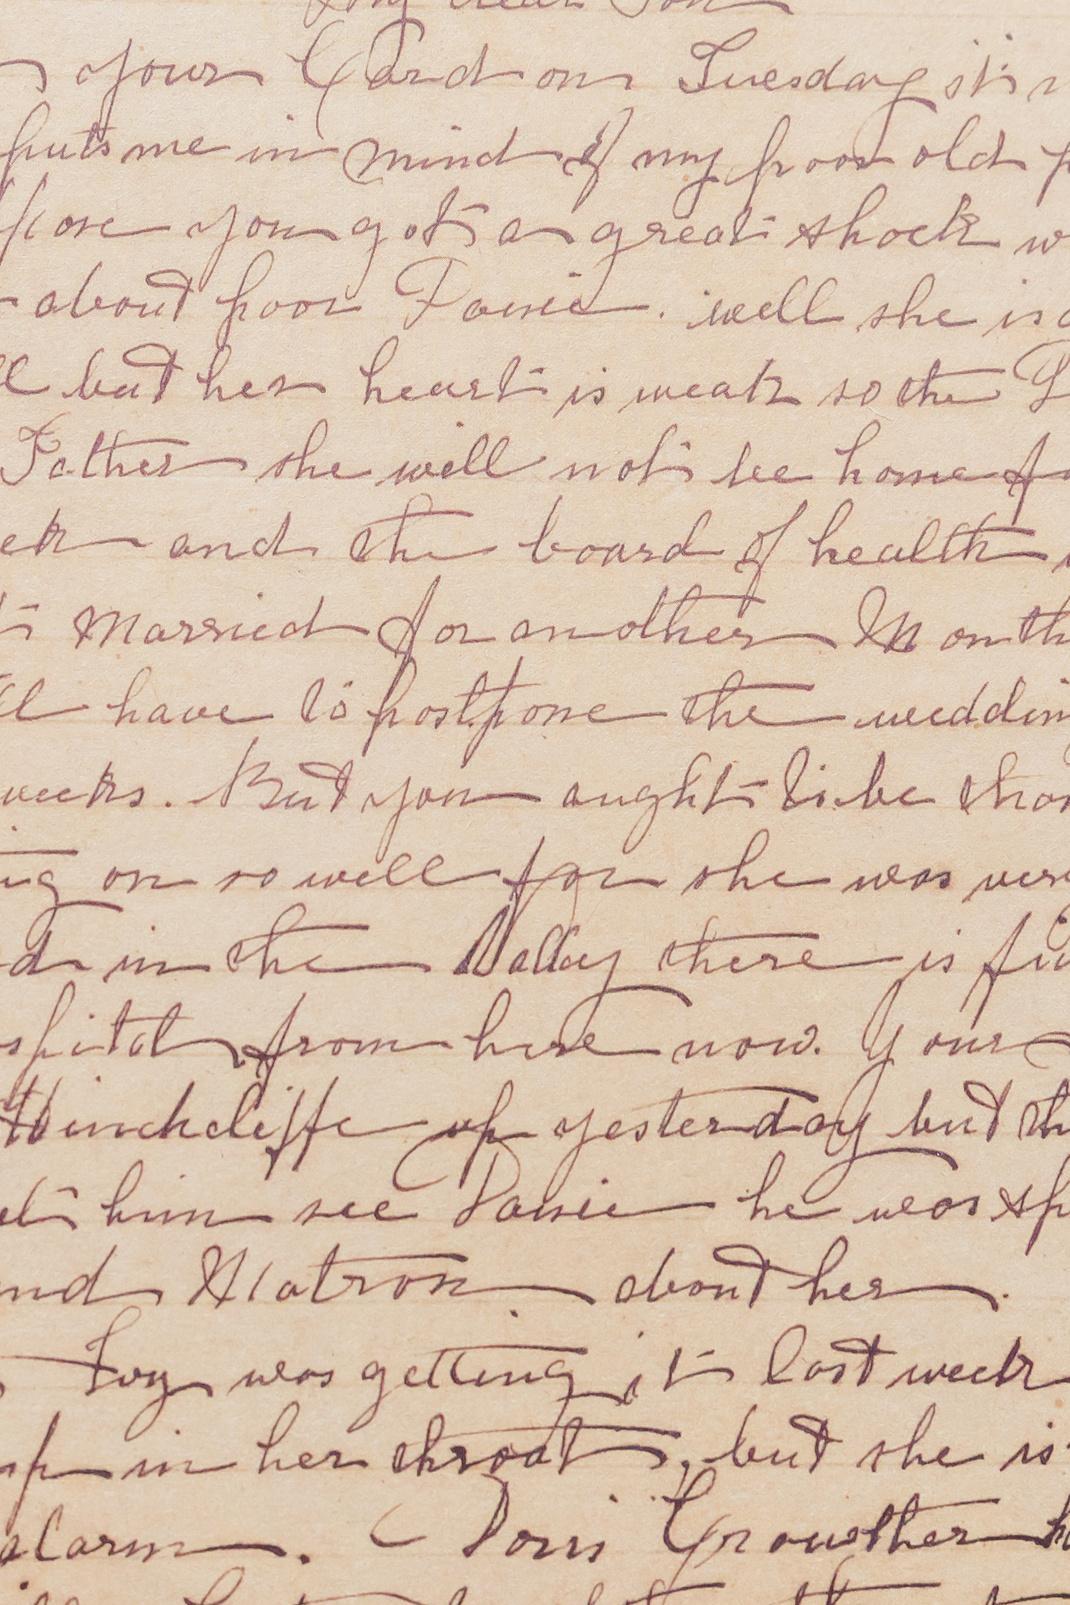 My dear Son
your Card on Tuesday it
puts me in mind of my poor old
pose you got a great shock w
about poor Janie. well she is
ll but her heart is weak so the
Father she will not be home
ek and the board of health
t Married for another Month
ll have to postpone the weddin
weeks. But you aught to be than
ing on so well for she was very
d in the Valley there is fiv
spital from here now. Your
Hinchcliffe up yesterday but th
et him see Janie he was sp
and Matron about her.
Ivy was getting it last week
up in her throat, but she is
alarm. Doris Growther h